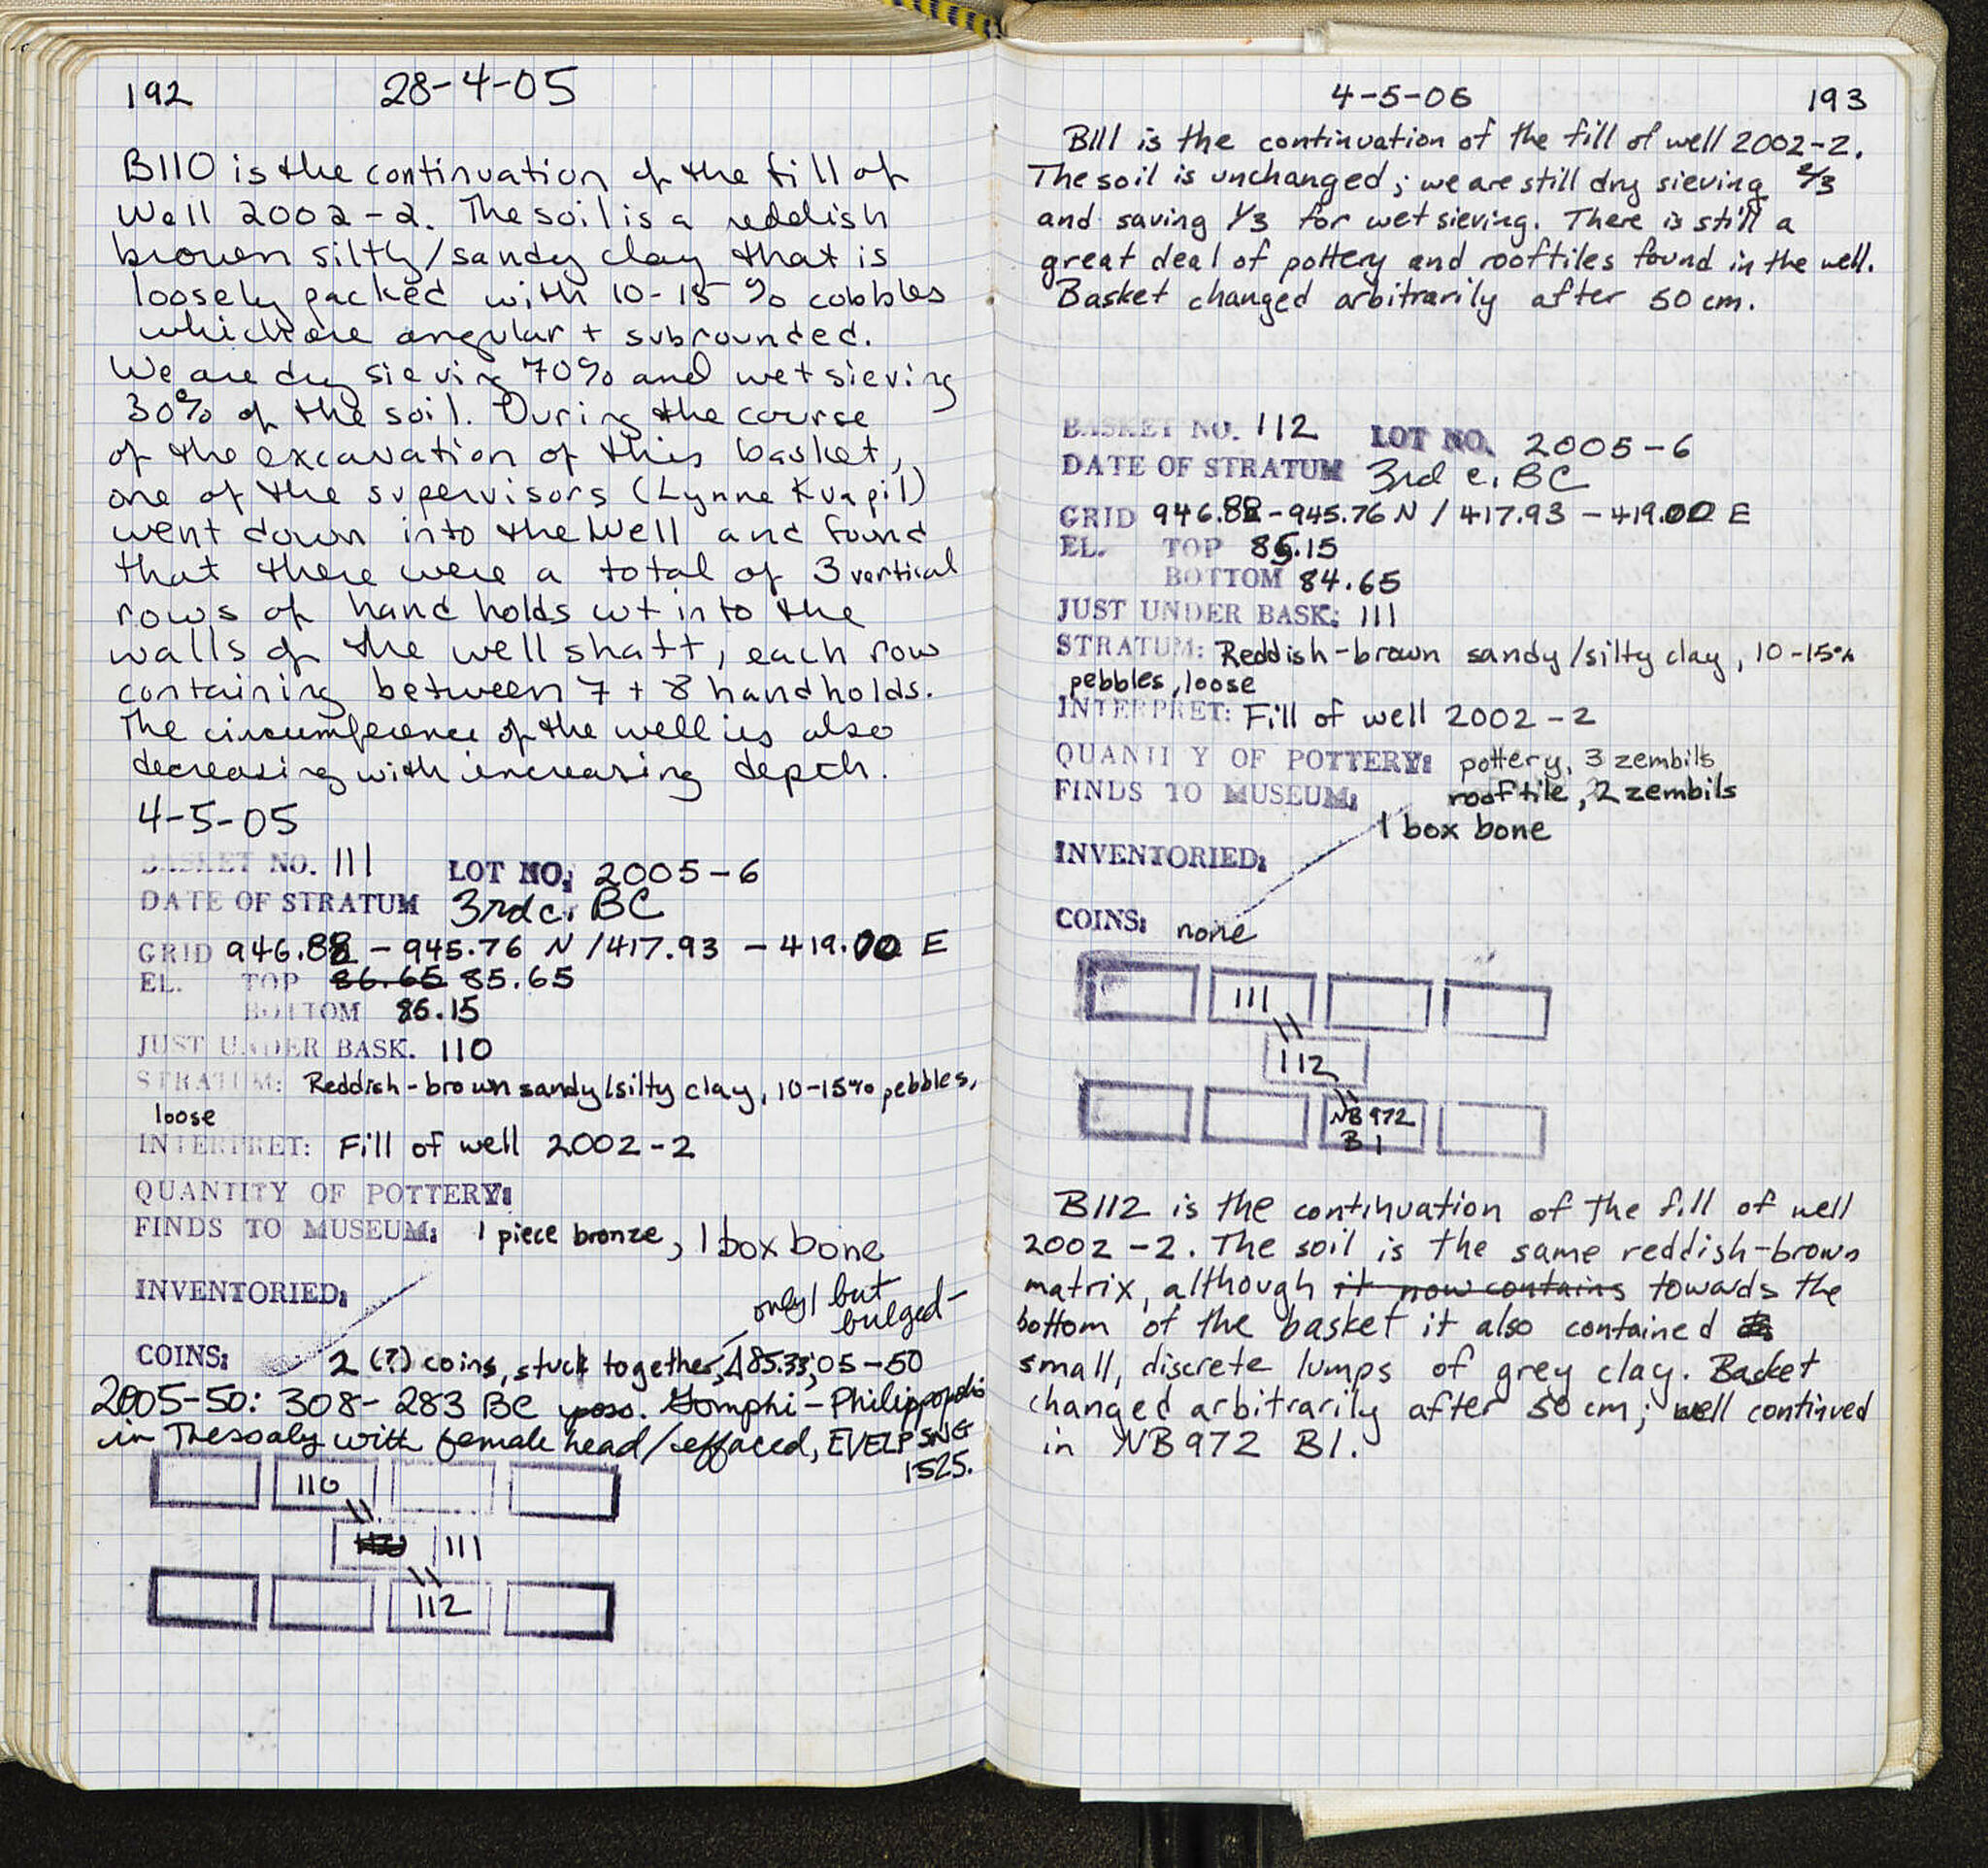 192
28-4-05
B110 is the continuation of the fill of
Well 2002-2. The soil is a reddish
brown silty/sandy clay that is
loosely packed with 10-15% cobbles
which are angular + subrounded.
We are dry sieving 70% and wet sieving
30% of the soil. During the course
of the excavation of this basket,
one of the supervisors (Lynne Kvapil)
went down into the well and found
that there were a total of 3 vertical
rows of hand holds cut into the
walls of the well shaft, each row
containing between 7 + 8 handholds.
The circumference of the well is also
decreasing with increasing depth.
4-5-05
BASKET NO. 111 LOT NO. 2005-6
DATE OF STRATUM 3rd c. BC
GRID 946.88 - 945.76 N / 417.93 - 419.00 E
EL. TOP 86.65 85.65
BOTTOM 85.15
JUST UNDER BASK. 110
STRATUM: Reddish-brown sandy/silty clay, 10-15% pebbles,
loose
INTERPRET: Fill of well 2002-2
QUANTITY OF POTTERY:
FINDS TO MUSEUM: 1 piece bronze, 1 box bone
INVENTORIED:
only 1 but
bulged-
COINS: 2 (?) coins, stuck together, 85.33; 05-50
2005-50: 308-283 BC poss. Gomphi-Philippopolis
in Thessaly with female head/effaced, EVELP SNG
1525.
110
111
112
4-5-05
193
B111 is the continuation of the fill of well 2002-2.
The soil is unchanged; we are still dry sieving 2/3
and saving 1/3 for wet sieving. There is still a
great deal of pottery and rooftiles found in the well.
Basket changed arbitrarily after 50 cm.
BASKET NO. 112 LOT NO. 2005-6
DATE OF STRATUM 3rd c. BC
GRID 946.88-945.76 N / 417.93 - 419.00 E
EL. TOP 85.15
BOTTOM 84.65
JUST UNDER BASK: 111
STRATUM: Reddish-brown sandy/silty clay, 10-15%
pebbles, loose
INTERPRET: Fill of well 2002-2
QUANTITY OF POTTERY: pottery, 3 zembils
FINDS TO MUSEUM: rooftile, 2 zembils
1 box bone
INVENTORIED:
COINS: none
111
112
NB972
B1
B112 is the continuation of the fill of well
2002-2. The soil is the same reddish-brown
matrix, although it now contains towards the
bottom of the basket it also contained
small, discrete lumps of grey clay. Basket
changed arbitrarily after 50 cm; well continued
in NB972 B1.